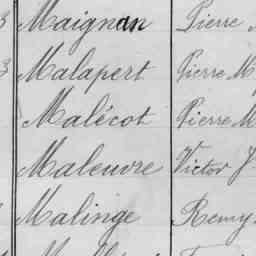 3 Maignan Pierre
3 Malapert Pierre M
Malécot Pierre M
Maleuvre Victor J
Malinge Remy